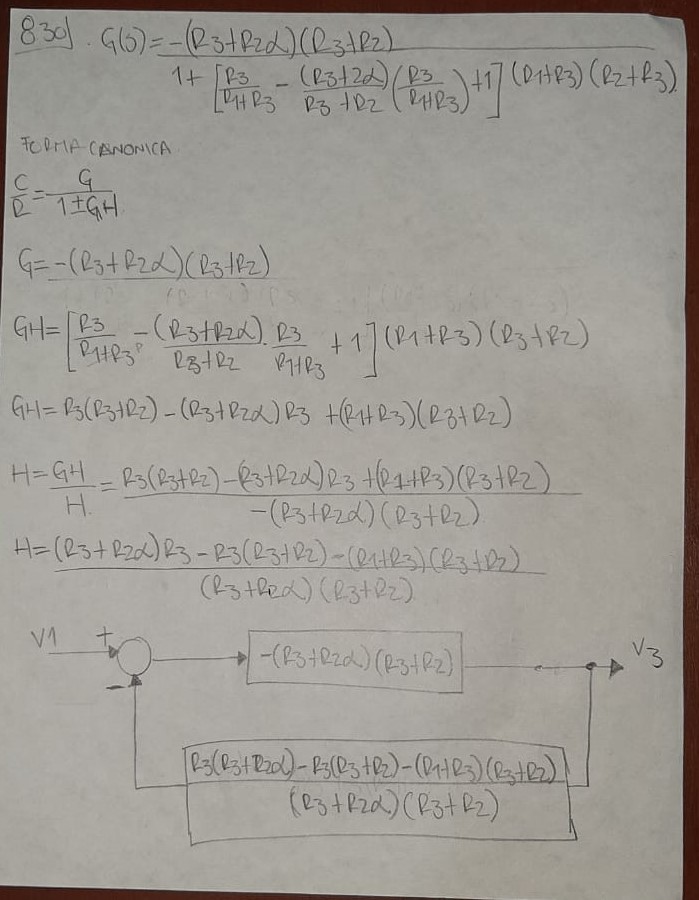 830) . G(s) = -(R3+R2α)(R3+R2)
1 + [R3/R1+R3 - (R3+2α)/R3+R2 (R3/R1+R3) +1] (R1+R3) (R2+R3)
FORMA CANONICA
C/R = G/1±GH
G = -(R3+R2α)(R3+R2)
GH = [R3/R1+R3 - (R3+R2α)/R3+R2 . R3/R1+R3 + 1] (R1+R3) (R3+R2)
GH = R3(R3+R2) - (R3+R2α) R3 + (R1+R3)(R3+R2)
H = GH/H = R3(R3+R2) - (R3+R2α) R3 + (R1+R3)(R3+R2)
-(R3+R2α) (R3+R2)
H = (R3+R2α) R3 - R3(R3+R2) - (R1+R3) (R3+R2)
(R3+R2α) (R3+R2)
V1 + -(R3+R2α) (R3+R2) V3
-
R3(R3+R2α) - R3(R3+R2) - (R1+R3) (R3+R2)
(R3+R2α) (R3+R2)